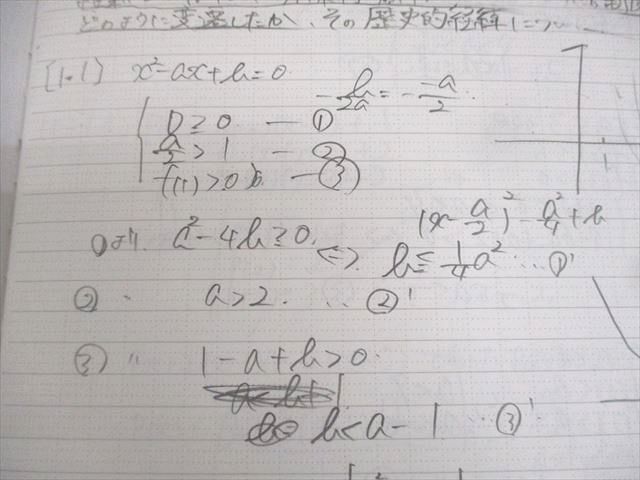 どのように変遷したか、その歴史的経緯につ
[1.1] x²-ax+b=0
-b/2a = - -a/2
D≧0 — ①
a/2>1 — ②
f(1)>0 — ③
(x-a/2)² - a²/4 + b
①より a²-4b≧0 ⇔ b≦1/4a² … ①'
② 〃 a>2. … ②'
③ 〃 1-a+b>0
b<a-1 … ③'